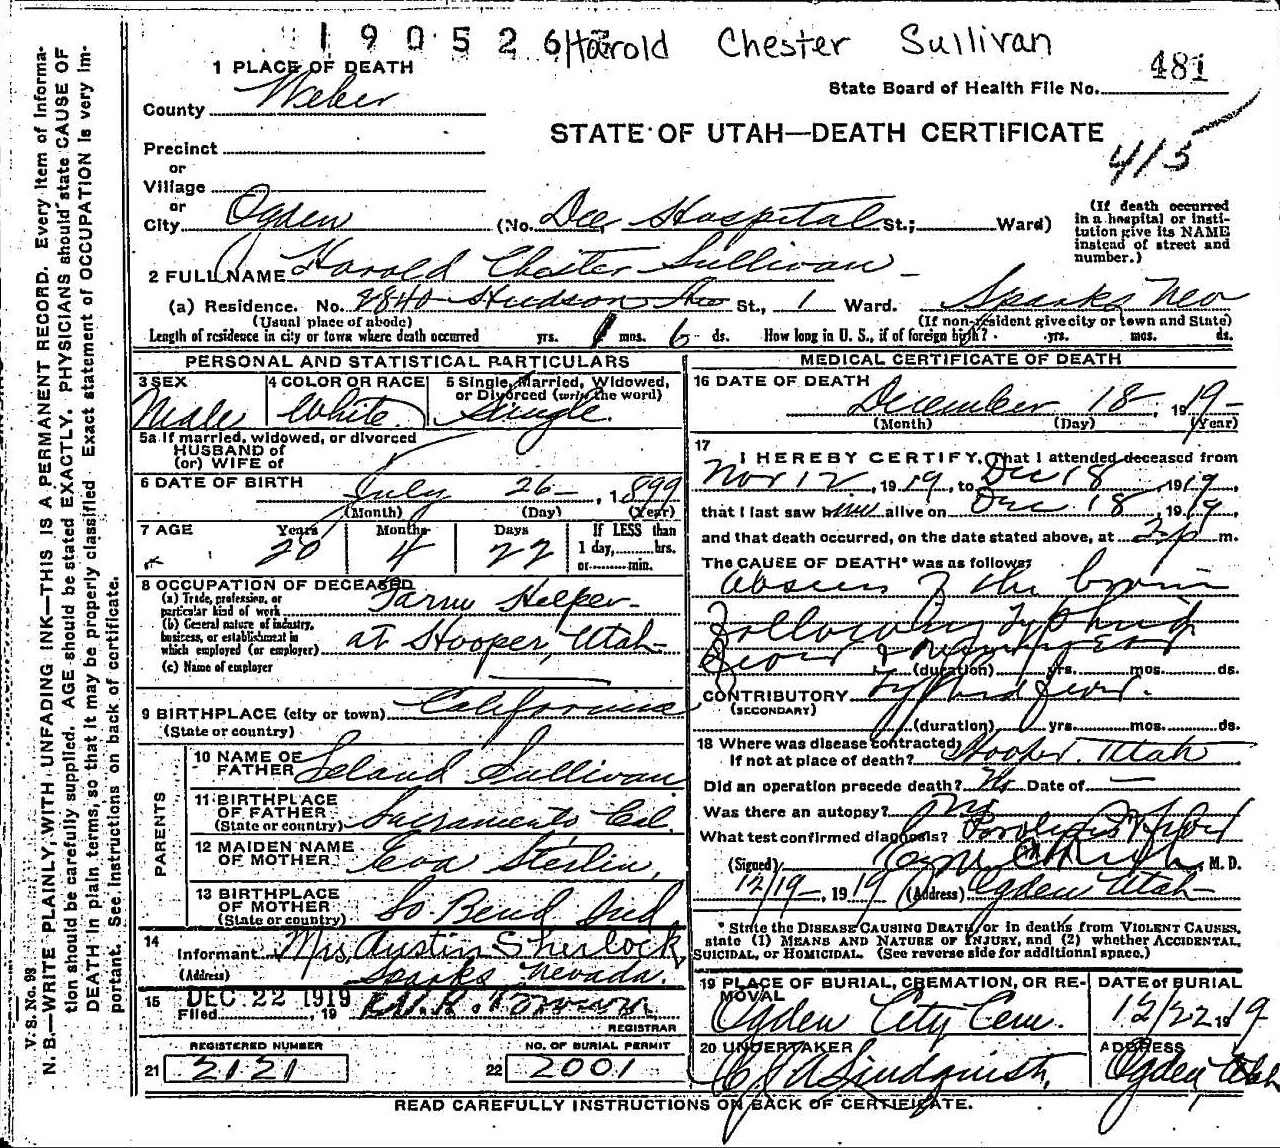 190526 Harold Chester Sullivan
481
State Board of Health File No.
1 PLACE OF DEATH
County Weber
STATE OF UTAH—DEATH CERTIFICATE
415
Precinct
or
Village
or
City Ogden (No. Dee Hospital St.; Ward)
(If death occurred
in a hospital or insti-
tution give its NAME
instead of street and
number.)
2 FULL NAME Harold Chester Sullivan
(a) Residence. No. 2840 Hudson Ave St., 1 Ward. Sparks Nev
(Usual place of abode) (If non-resident give city or town and State)
Length of residence in city or town where death occurred yrs. 1 mos. 6 ds. How long in U. S., if of foreign birth? yrs. mos. ds.
PERSONAL AND STATISTICAL PARTICULARS
3 SEX 4 COLOR OR RACE 5 Single, Married, Widowed,
or Divorced (write the word)
Male White Single
5a If married, widowed, or divorced
HUSBAND of
(or) WIFE of
6 DATE OF BIRTH July 26 , 1899
(Month) (Day) (Year)
7 AGE Years Months Days If LESS than
20 4 22 1 day, hrs.
or min.
8 OCCUPATION OF DECEASED
(a) Trade, profession, or
particular kind of work Farm Helper
(b) General nature of industry,
business, or establishment in
which employed (or employer) at Hooper, Utah
(c) Name of employer
9 BIRTHPLACE (city or town) California
(State or country)
PARENTS
10 NAME OF
FATHER Leland Sullivan
11 BIRTHPLACE
OF FATHER
(State or country) Sacramento Cal.
12 MAIDEN NAME
OF MOTHER Eva Sterlin
13 BIRTHPLACE
OF MOTHER
(State or country) So. Bend Ind
14
Informant Mrs. Austin Sherlock
(Address) Sparks Nevada.
15 DEC 22 1919
Filed , 19 Brown
REGISTRAR
REGISTERED NUMBER NO. OF BURIAL PERMIT
21 2121 22 2001
MEDICAL CERTIFICATE OF DEATH
16 DATE OF DEATH
December 18 , 1919
(Month) (Day) (Year)
17
I HEREBY CERTIFY, That I attended deceased from
Nov 12 , 1919, to Dec 18 , 1919,
that I last saw him alive on Dec 18 , 1919,
and that death occurred, on the date stated above, at m.
The CAUSE OF DEATH* was as follows:
Abscess of the brain
following Typhoid
fever &
(duration) yrs. mos. ds.
CONTRIBUTORY Typhoid fever.
(SECONDARY)
(duration) yrs. mos. ds.
18 Where was disease contracted,
If not at place of death? Hooper. Utah
Did an operation precede death? No Date of —
Was there an autopsy? No
What test confirmed diagnosis?
(Signed) M. D.
12/19 , 1919 (Address) Ogden Utah
* State the DISEASE CAUSING DEATH, or in deaths from VIOLENT CAUSES,
state (1) MEANS AND NATURE OF INJURY, and (2) whether ACCIDENTAL,
SUICIDAL, or HOMICIDAL. (See reverse side for additional space.)
19 PLACE OF BURIAL, CREMATION, OR RE-
MOVAL
Ogden City Cem.
DATE of BURIAL
12/22 1919
20 UNDERTAKER
Lindquist,
ADDRESS
Ogden, Utah
READ CAREFULLY INSTRUCTIONS ON BACK OF CERTIFICATE.
V. S. No. 98
N. B.—WRITE PLAINLY, WITH UNFADING INK—THIS IS A PERMANENT RECORD. Every item of informa-
tion should be carefully supplied. AGE should be stated EXACTLY. PHYSICIANS should state CAUSE OF
DEATH in plain terms, so that it may be properly classified. Exact statement of OCCUPATION is very im-
portant. See instructions on back of certificate.